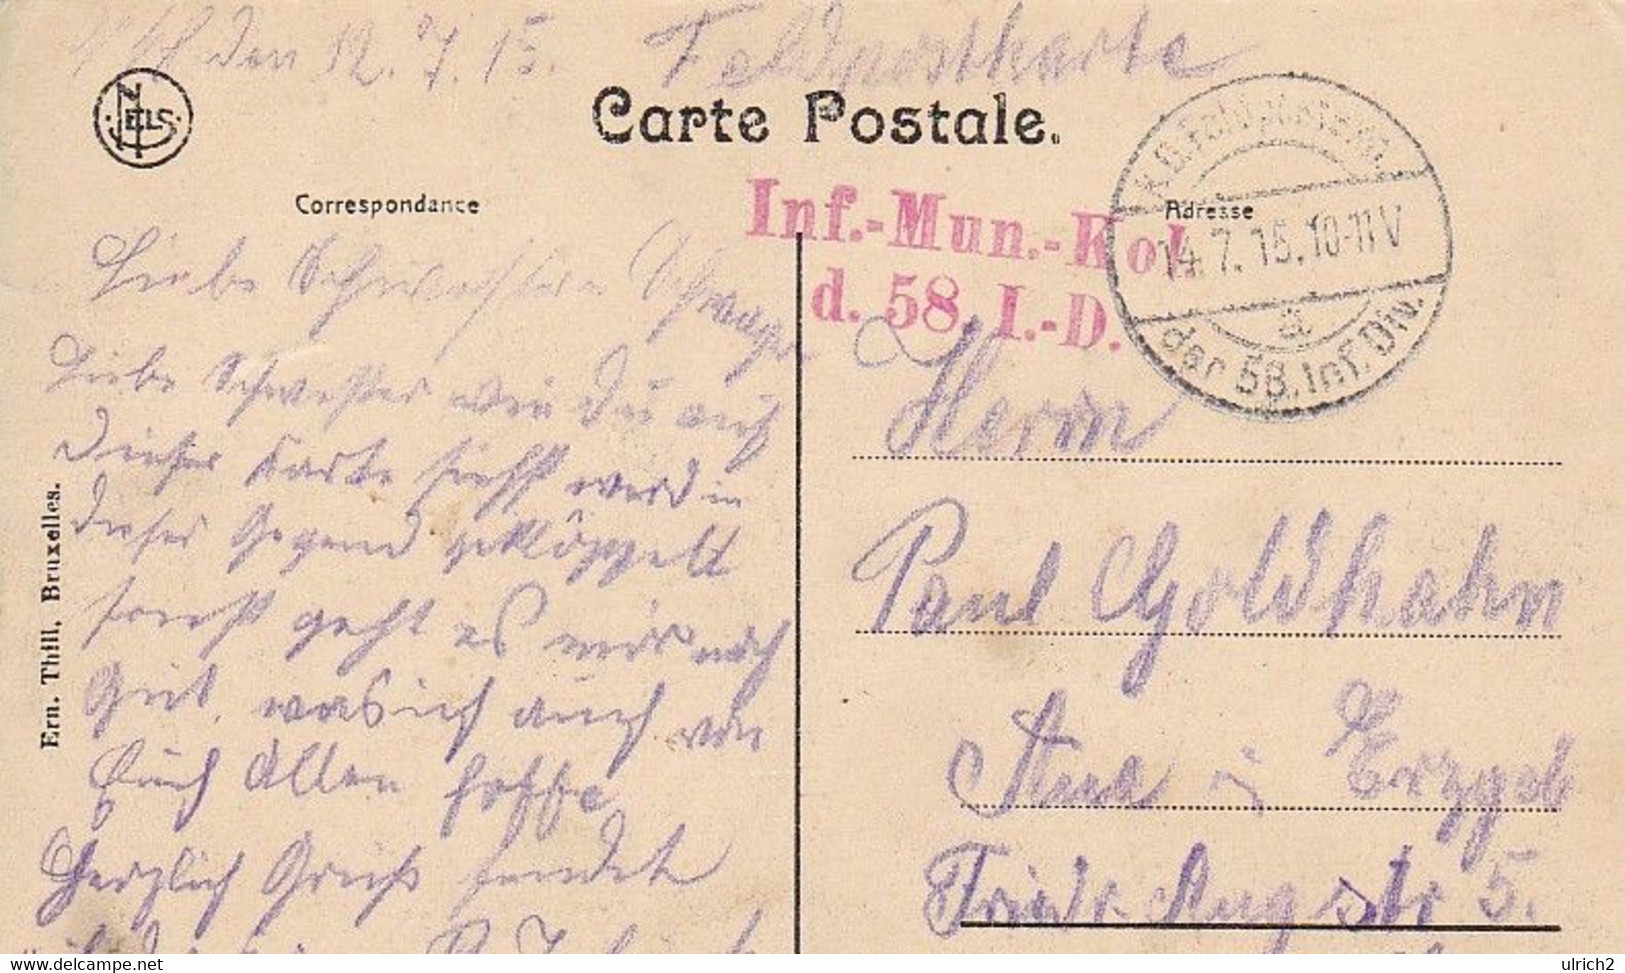 den 12.7.15. Feldpostkarte
NELS
Carte Postale.
Correspondance
Adresse
Inf.-Mun.-Kol.
d. 58. I.-D.
K.D. Feldpostexp.
14.7.15.10-11V
a
der 58. Inf. Div.
Liebe Schwester u Schwager
Liebe Schwester wie Du auf
dieser Karte siehst werd in
dieser Gegend geklöppelt
sonst geht es mir noch
Gut, was ich auch von
Euch Allen hoffe
Herzlich Grüßt sendet
Ern. Thill, Bruxelles.
Herrn
Paul Goldhahn
Aue i Erzgeb
Friedr. Augstr 5.
ulrich2